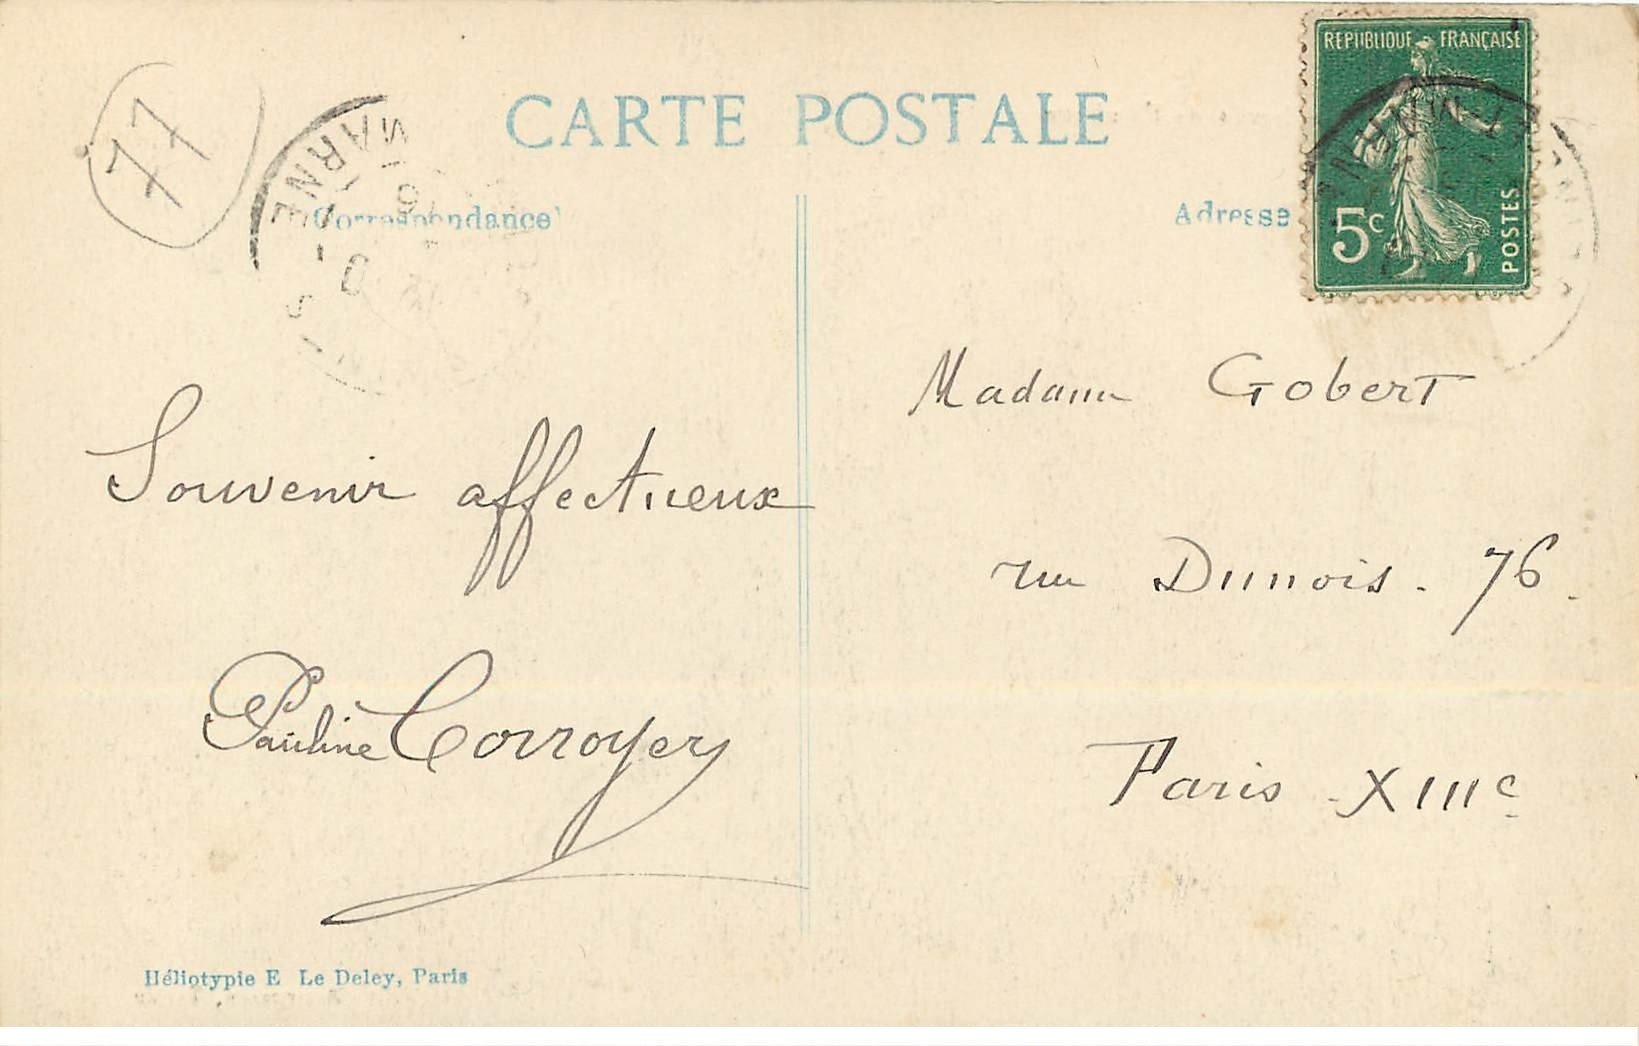 77
CARTE POSTALE
Correspondance
Adresse
REPUBLIQUE FRANÇAISE
5c
POSTES
MARNE
Souvenir affectueux
Pauline Corroyer
Madame Gobert
rue Dunois. 76.
Paris XIIIe
Héliotypie E Le Deley, Paris